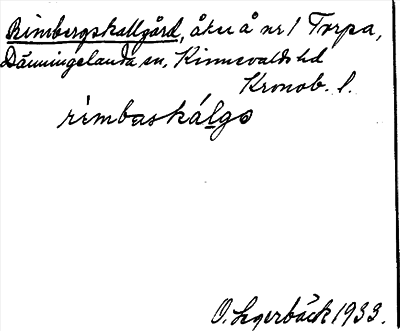 Rimbergskallgård, åker å nr 1 Torpa,
Dänningelanda sn, Kinnevalds hd
Kronob. l.
rimbaskálgo
O. Lagerbäck 1933.